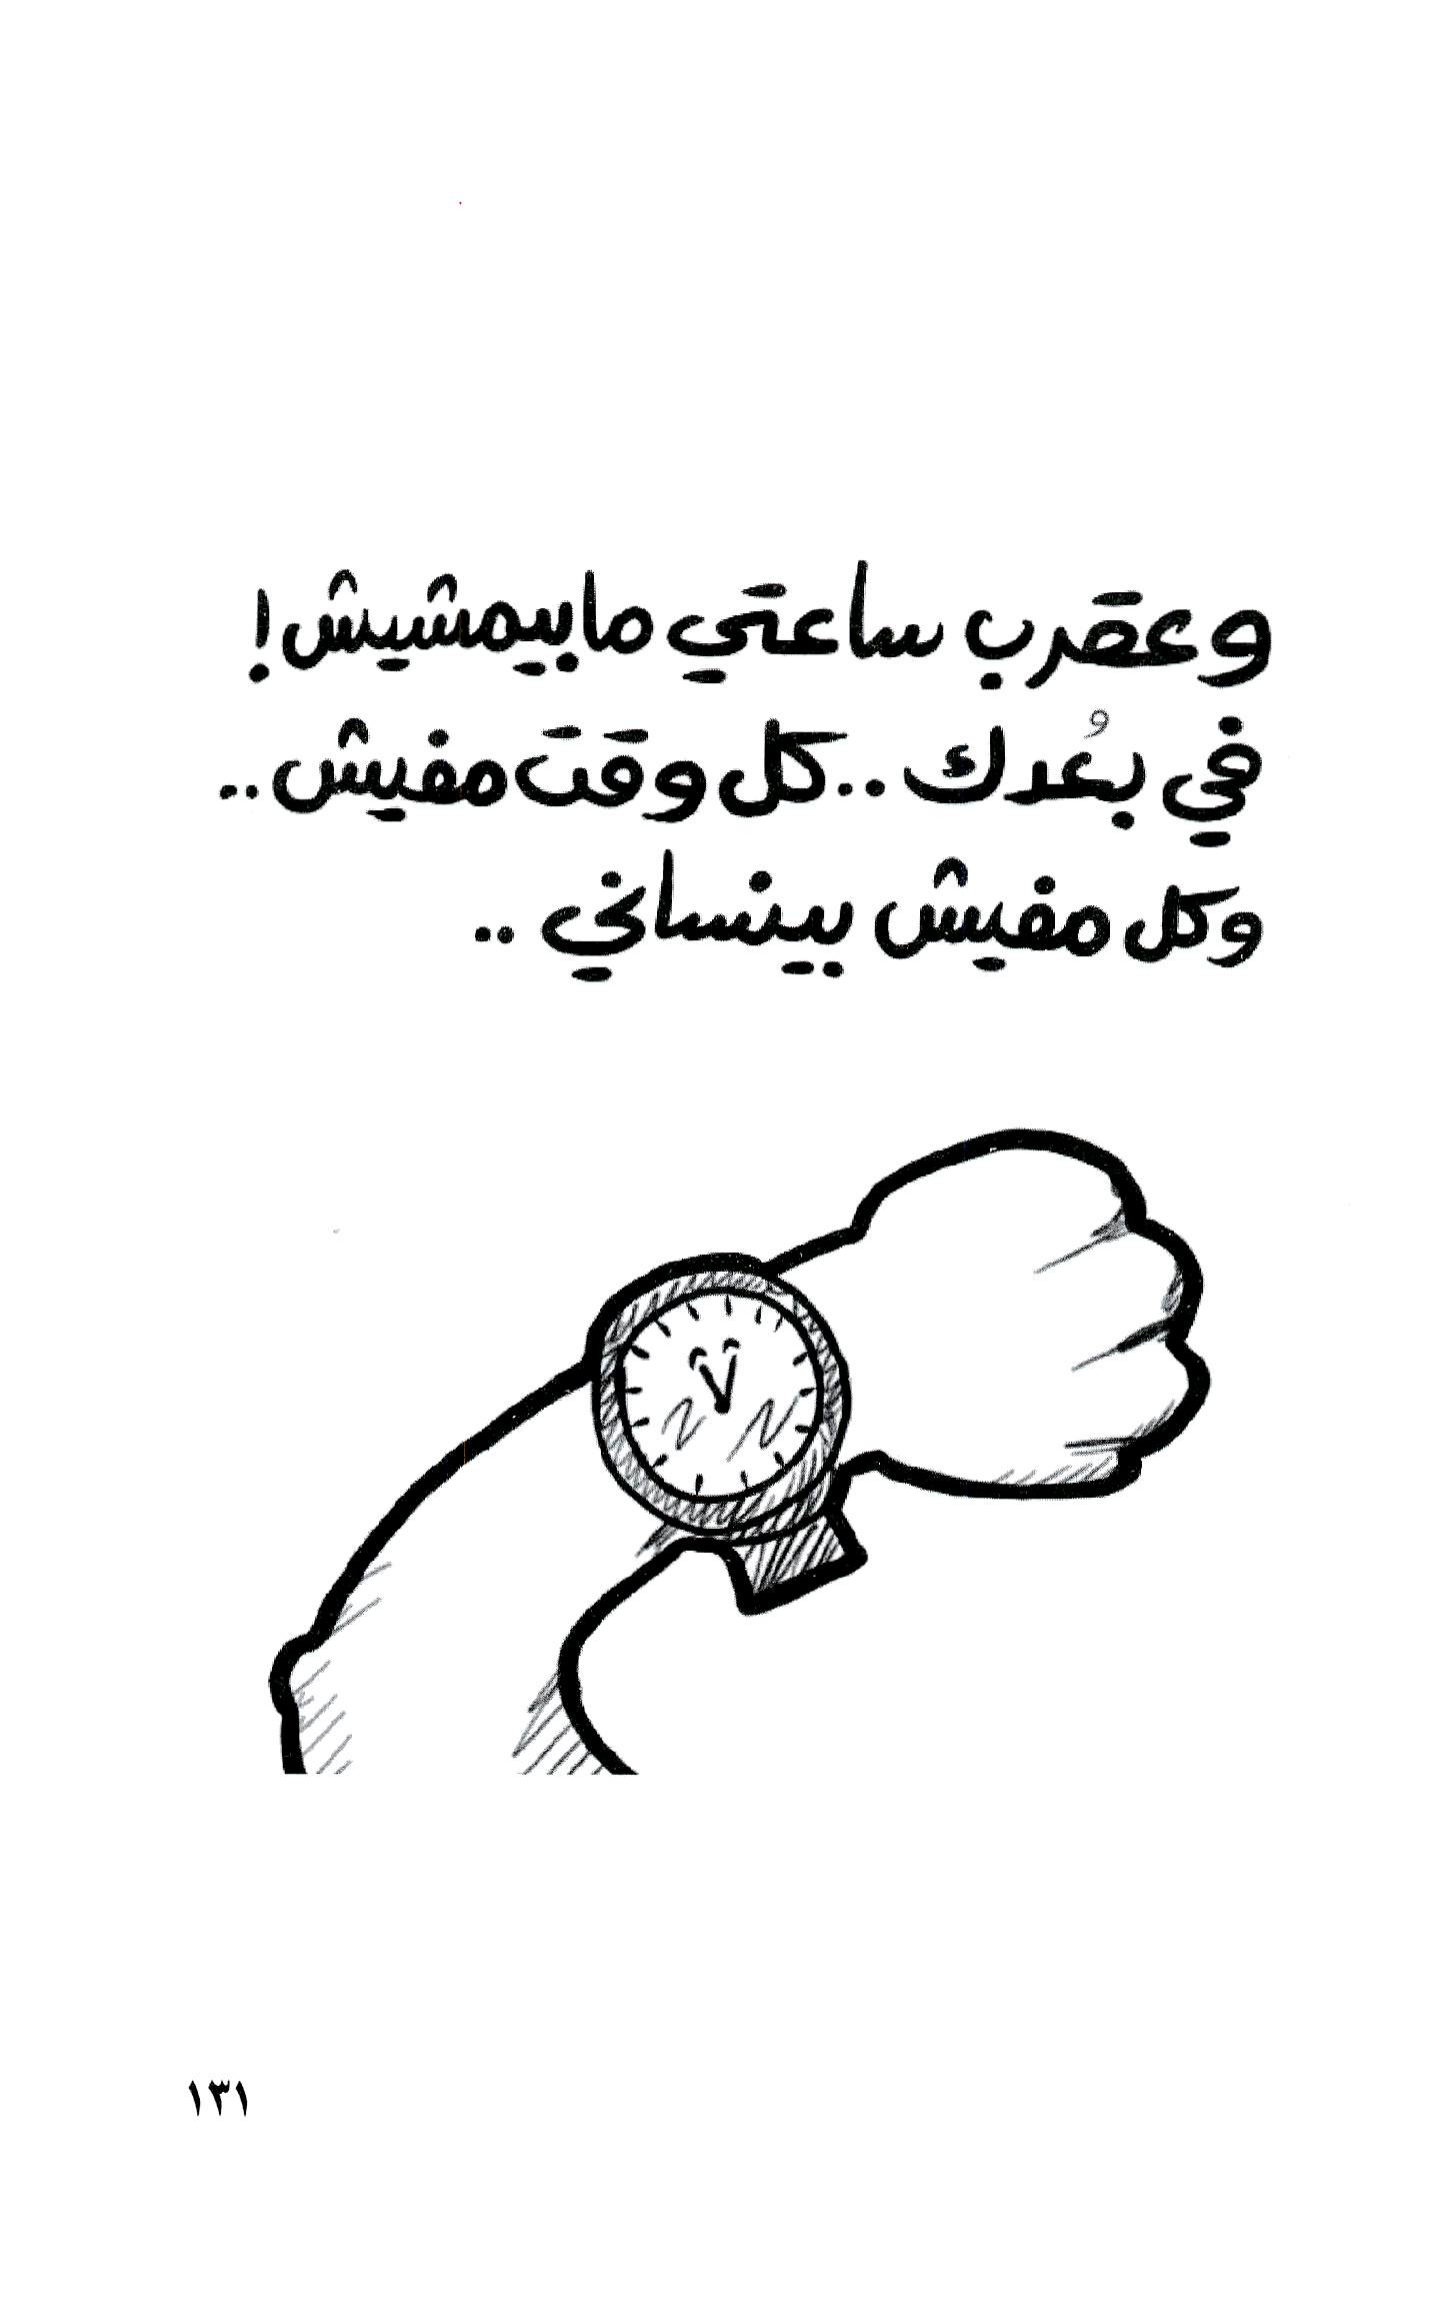 وعقرب ساعتي مابيمشيش!
في بعُدك .. كل وقت مفيش ..
وكل مفيش بينساني ..
١٣١